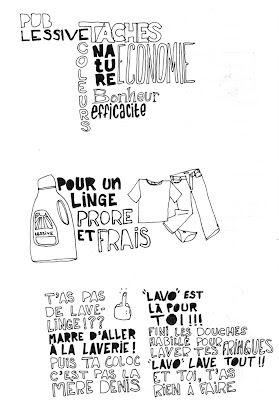 PUB
LESSIVE
TACHES
COULEURS
NATURE
ECONOMIE
Bonheur
efficacité
POUR UN
LINGE
PRORE
ET FRAIS
LESSIVE
T'AS PAS
DE LAVE-
LINGE!??
MARRE D'ALLER
À LA LAVERIE!
PUIS TA COLOC
C'EST PAS LA
MÈRE DENIS
"LAVO" EST
LÀ POUR
TOI!!!
FINI LES DOUCHES
HABILLÉ POUR
LAVER TES FRINGUES
"LAVO" LAVE TOUT!!
ET TOI T'AS
RIEN À FAIRE